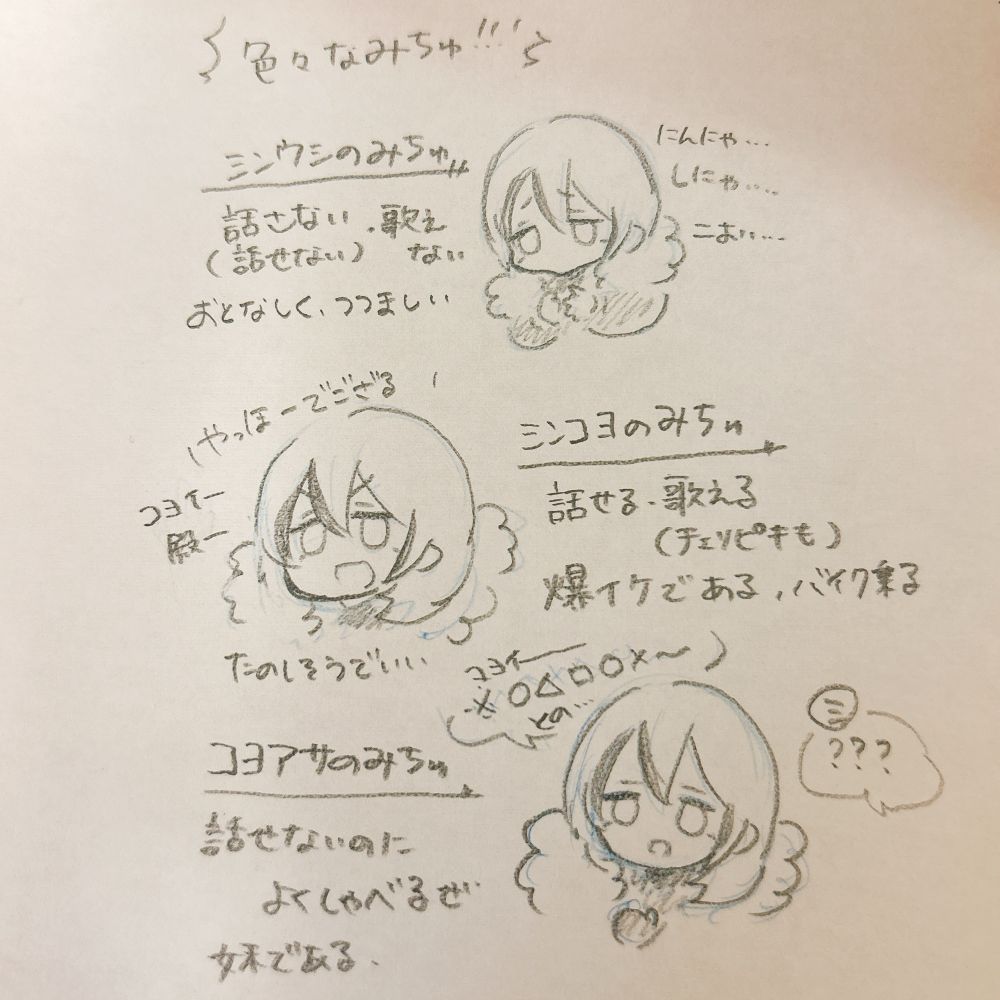 色々なみちゅ!!!
ミンウシのみちゅ
話さない、歌え
(話せない) ない
おとなしく、つつましい
にんにゃ…
しにゃ…
こおい…
やっほーでござる
コヨイー
殿ー
ミンコヨのみちゅ
話せる、歌える
(チェリピキも)
爆イケである、バイク乗る
たのしそうでいい
コヨイー
×○△□○×〜
×の…
ミ
???
コヨアサのみちゅ
話せないのに
よくしゃべるぜ
妹である.